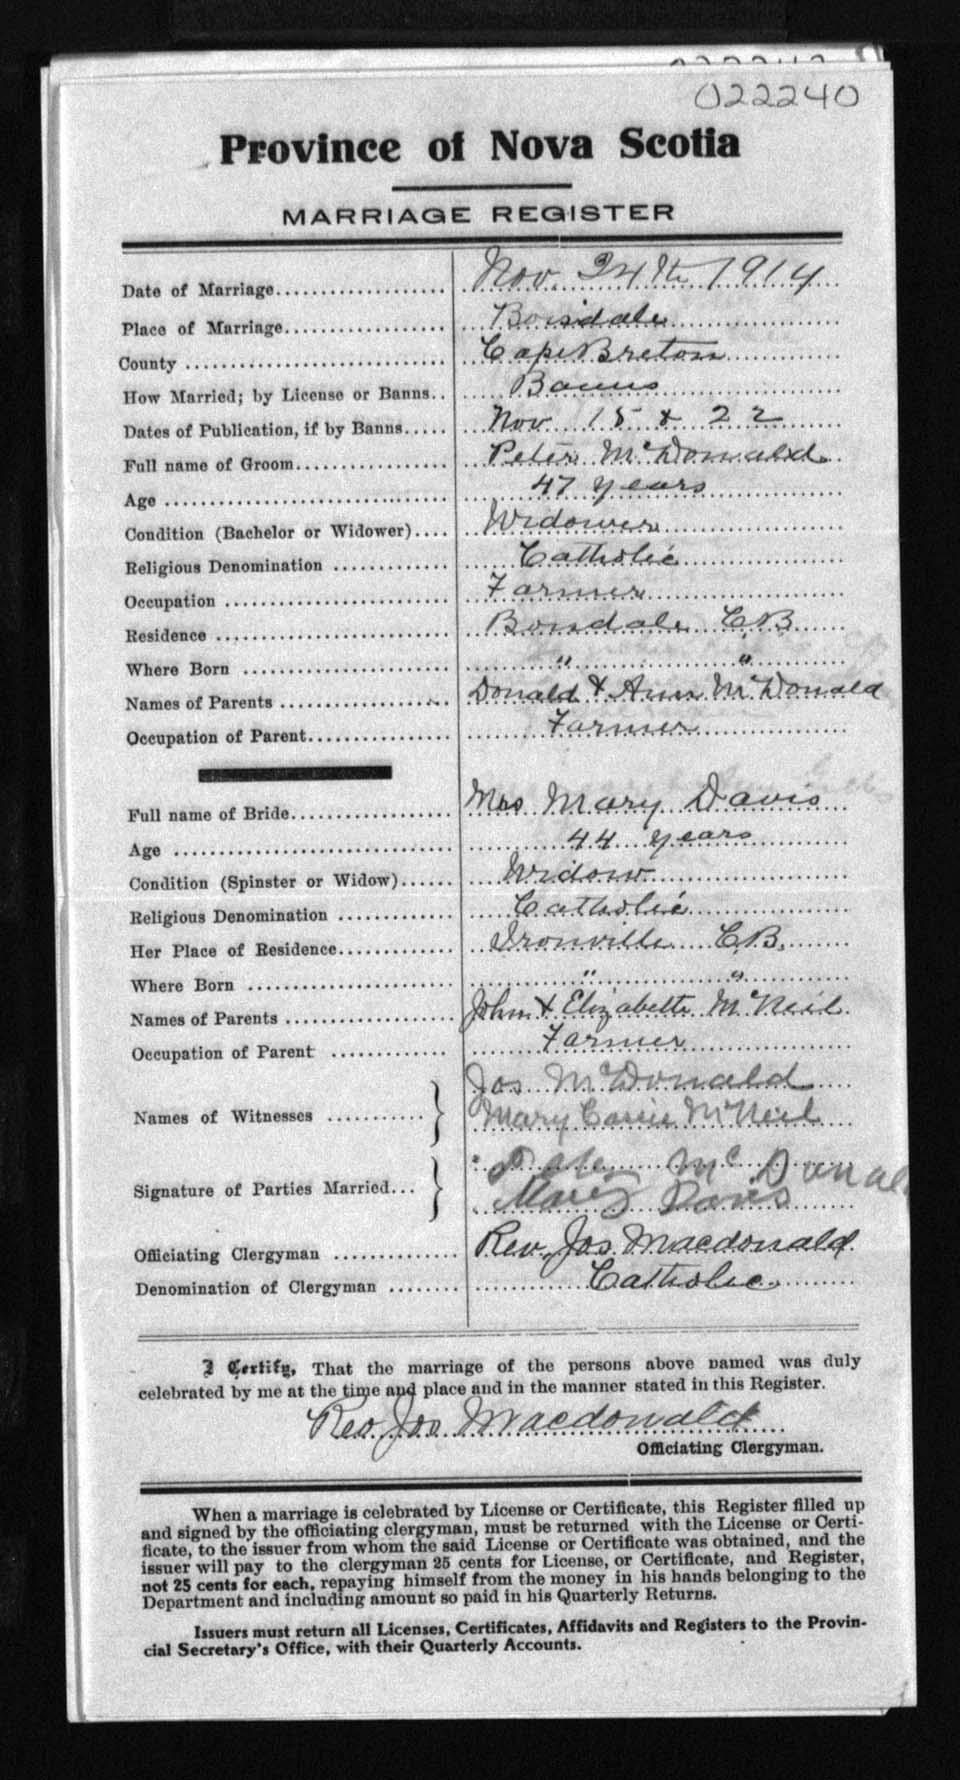 022240
Province of Nova Scotia
MARRIAGE REGISTER
Date of Marriage Nov 24th 1914
Place of Marriage Boisdale
County Cape Breton
How Married; by License or Banns Banns
Dates of Publication, if by Banns Nov 15 & 22
Full name of Groom Peter McDonald
Age 47 years
Condition (Bachelor or Widower) Widower
Religious Denomination Catholic
Occupation Farmer
Residence Boisdale CB
Where Born " "
Names of Parents Donald & Ann McDonald
Occupation of Parent Farmer
Full name of Bride Mrs Mary Davis
Age 44 years
Condition (Spinster or Widow) Widow
Religious Denomination Catholic
Her Place of Residence Ironville CB.
Where Born " "
Names of Parents John & Elizabeth McNeil
Occupation of Parent Farmer
Jos McDonald
Names of Witnesses
Mary Cassie McNeil
Peter McDonal
Signature of Parties Married
Mary Davis
Officiating Clergyman Rev. Jos. Macdonald
Denomination of Clergyman Catholic
I Certify, That the marriage of the persons above named was duly
celebrated by me at the time and place and in the manner stated in this Register.
Rev Jos Macdonald
Officiating Clergyman.
When a marriage is celebrated by License or Certificate, this Register filled up
and signed by the officiating clergyman, must be returned with the License or Certi-
ficate, to the issuer from whom the said License or Certificate was obtained, and the
issuer will pay to the clergyman 25 cents for License, or Certificate, and Register,
not 25 cents for each, repaying himself from the money in his hands belonging to the
Department and including amount so paid in his Quarterly Returns.
Issuers must return all Licenses, Certificates, Affidavits and Registers to the Provin-
cial Secretary's Office, with their Quarterly Accounts.